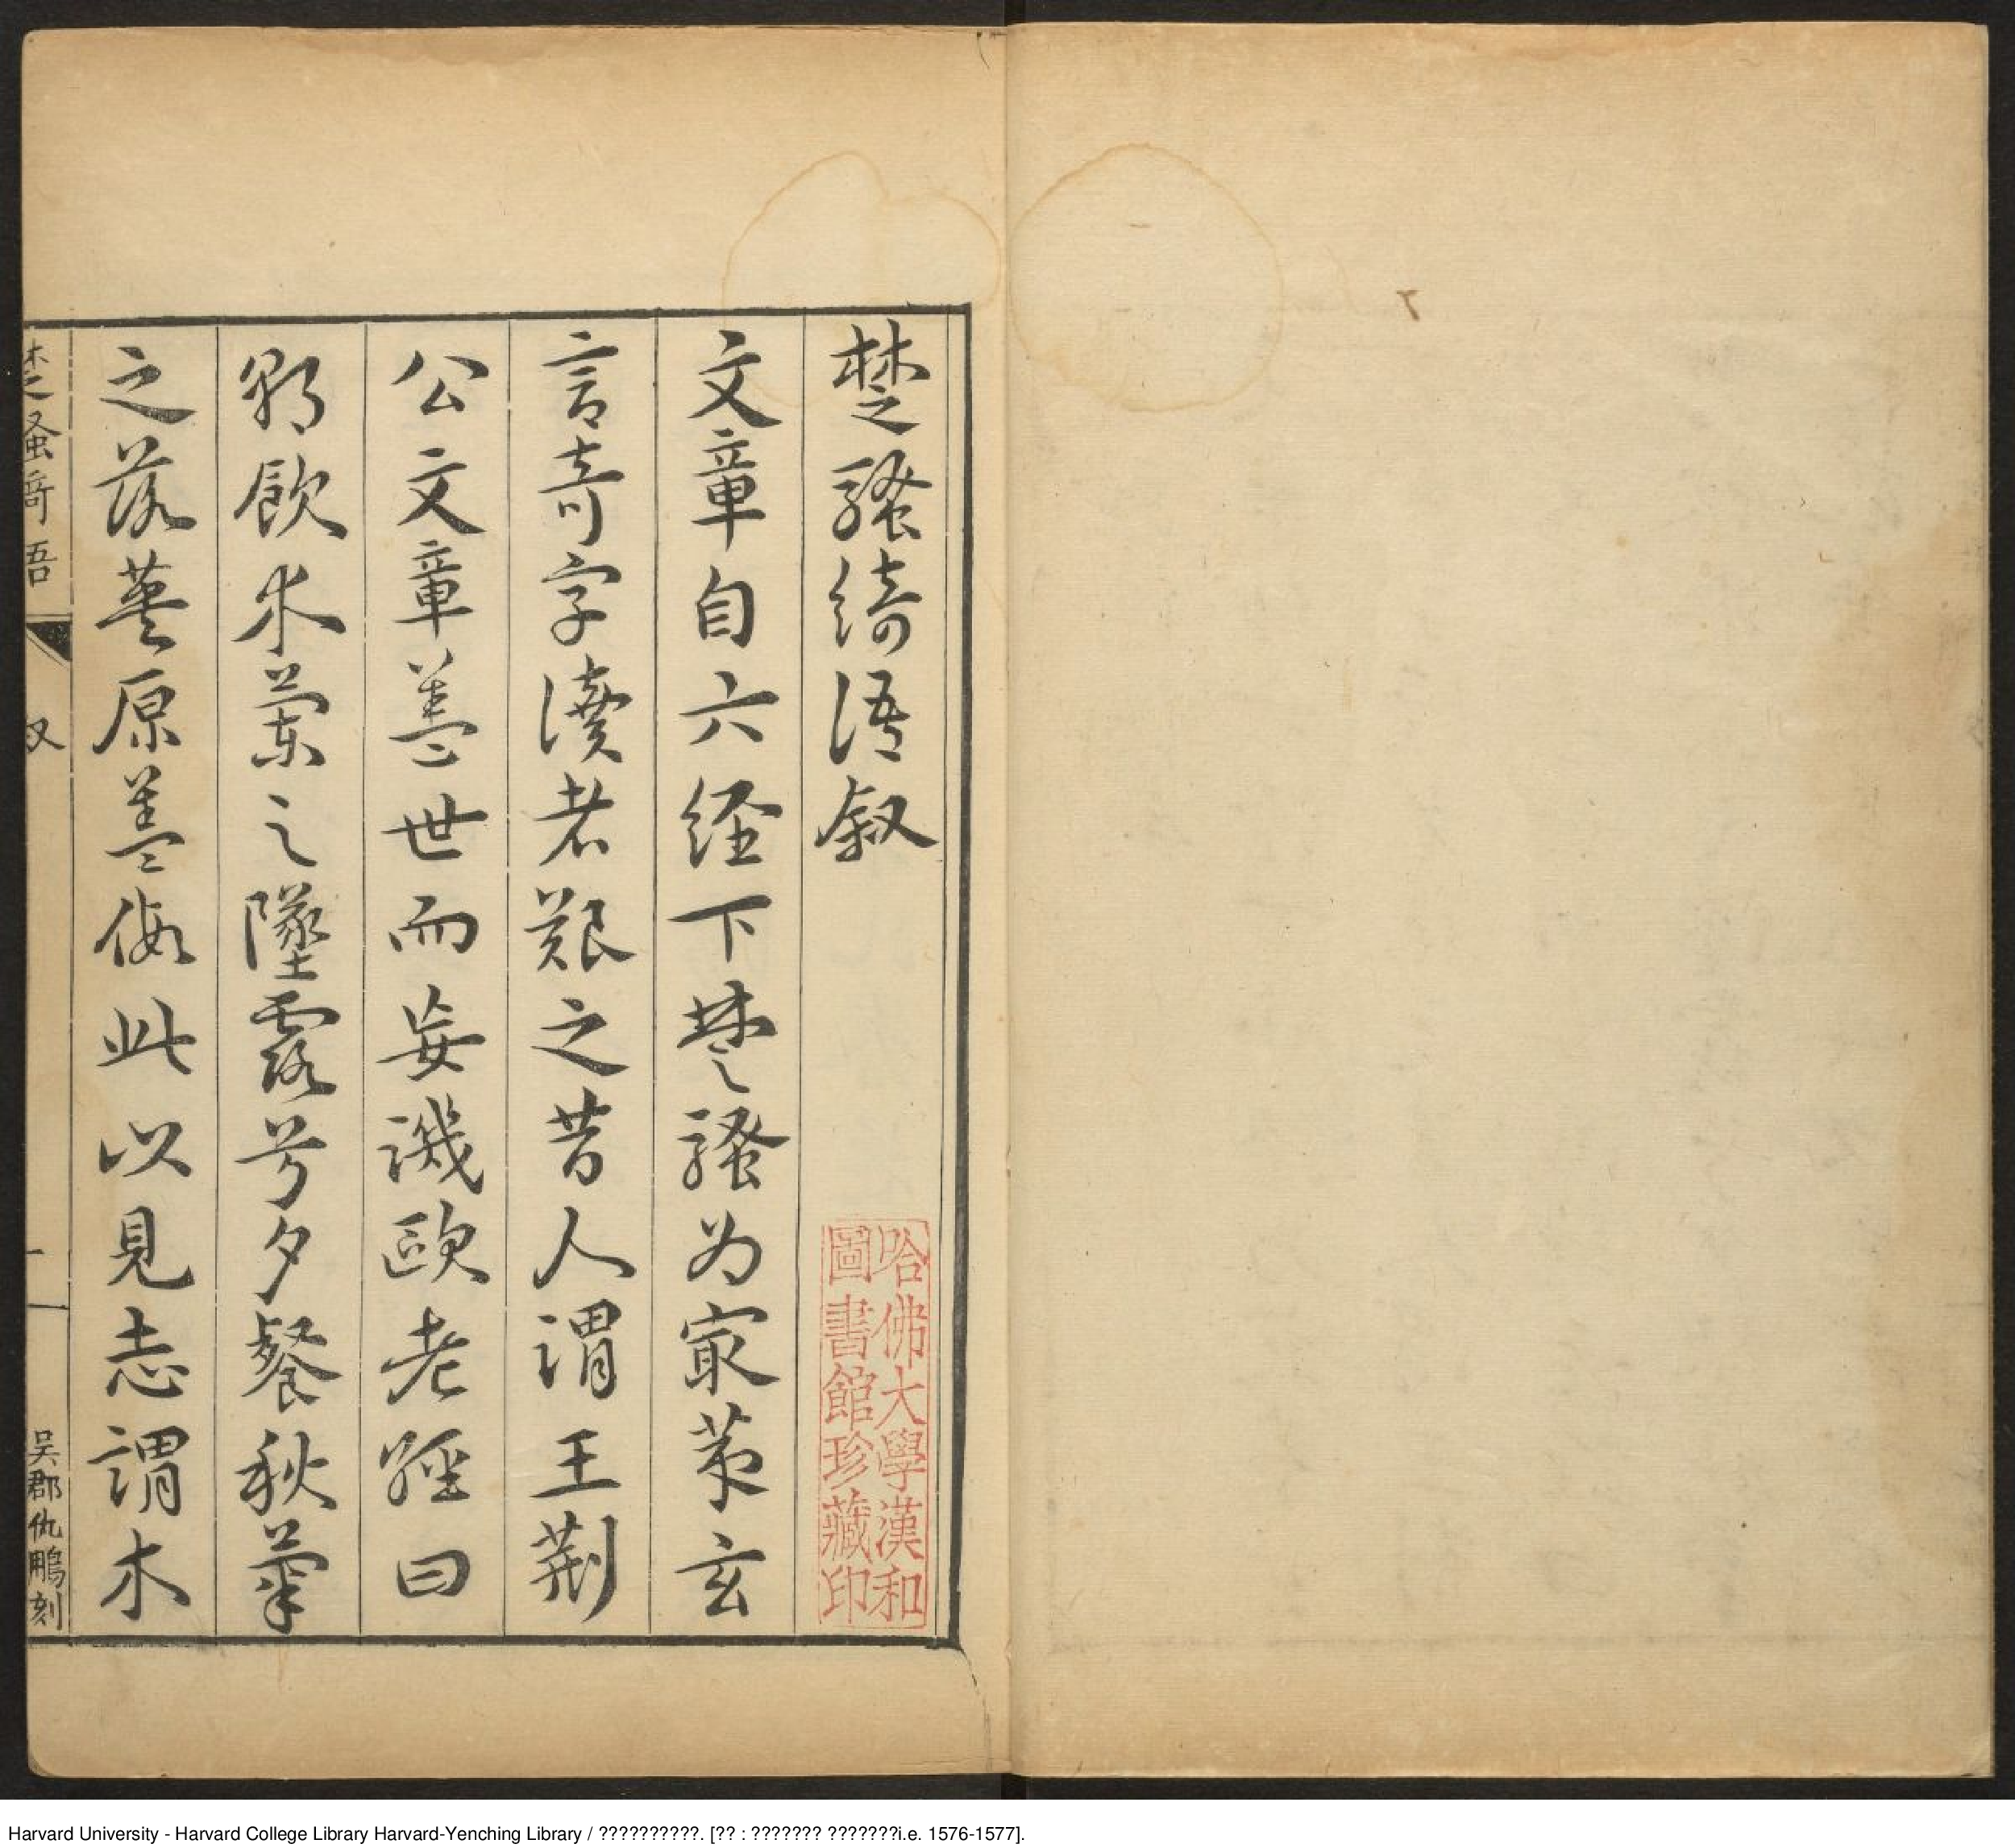 楚騷綺語叙
文章自六經下楚騷為最苐玄
言奇字讀者艱之昔人謂王荆
公文章蓋世而妄譏歐老經曰
朝飲木蘭之墜露兮夕餐秋菊
之落英原蓋假此以見志謂木
楚騷綺語
叙
一
吳郡仇鵬刻
哈佛大學漢和
圖書館珍藏印
Harvard University - Harvard College Library Harvard-Yenching Library / ??????????. [?? : ??????? ???????i.e. 1576-1577].